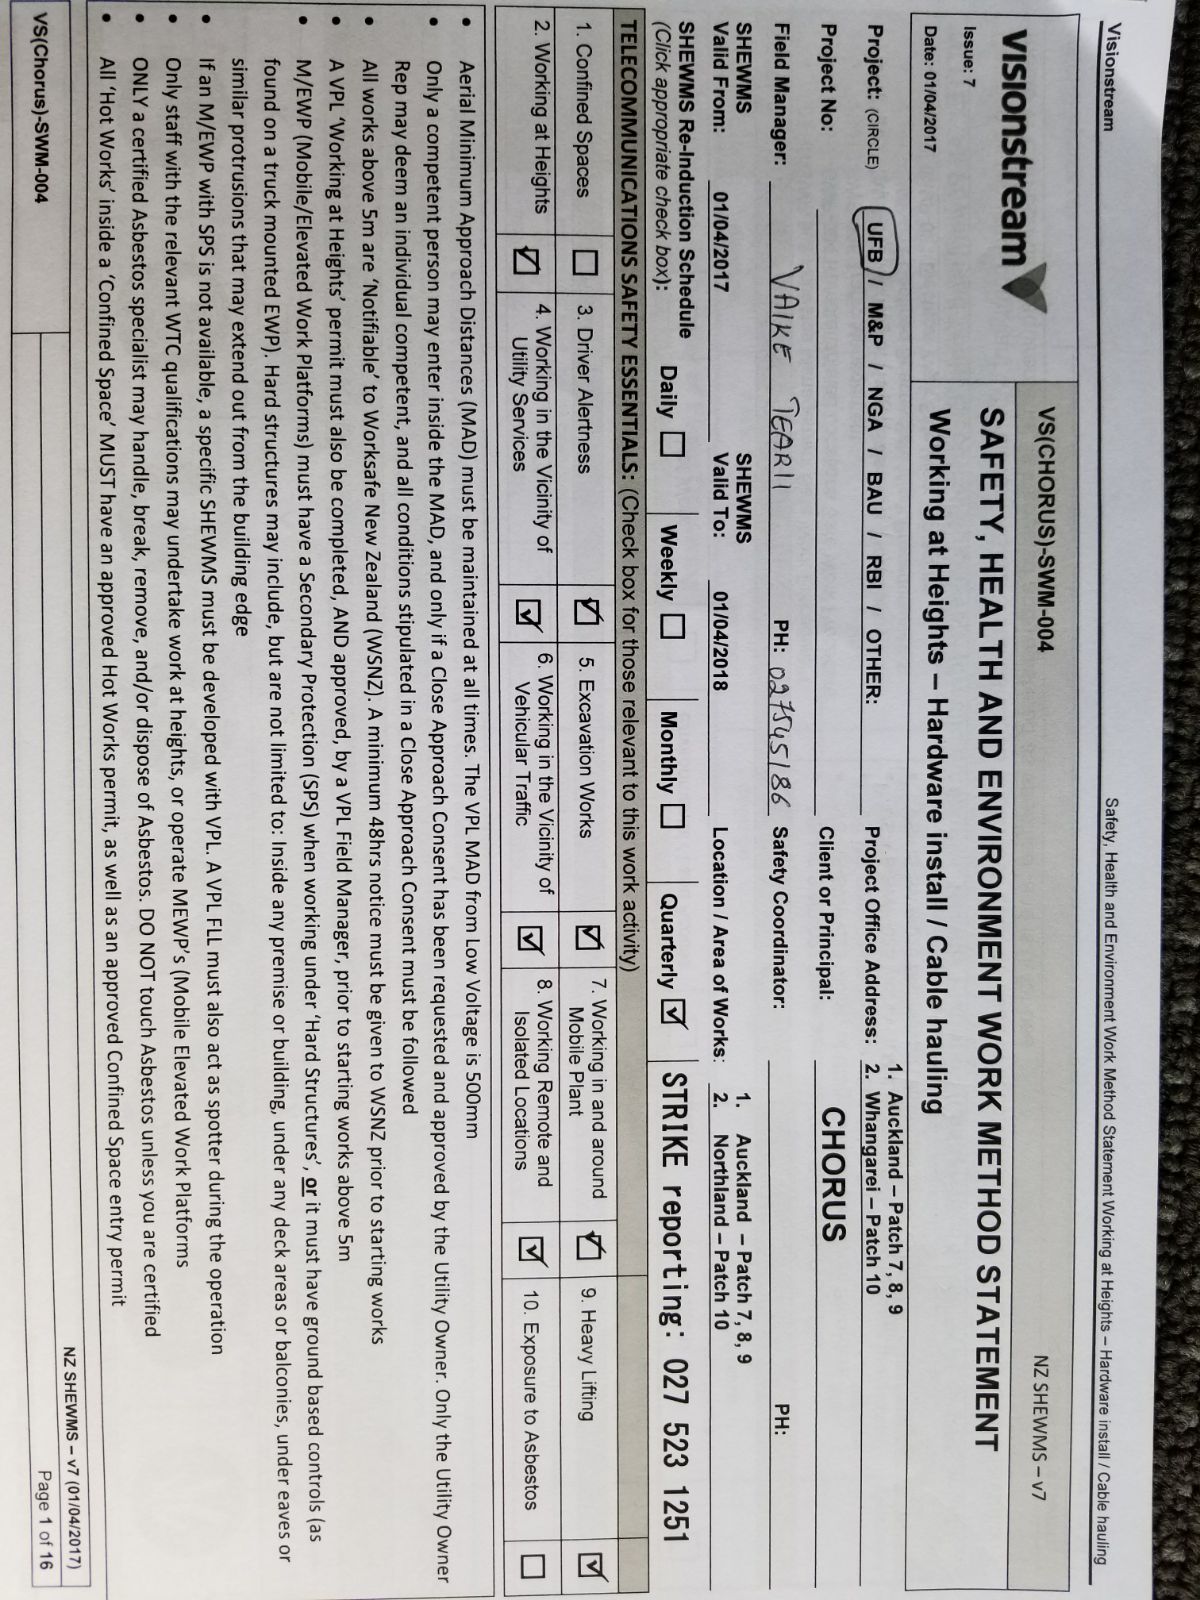 Visionstream
Safety, Health and Environment Work Method Statement Working at Heights – Hardware install / Cable hauling
visionstream
Issue: 7
Date: 01/04/2017
VS(CHORUS)-SWM-004
NZ SHEWMS – v7
SAFETY, HEALTH AND ENVIRONMENT WORK METHOD STATEMENT
Working at Heights – Hardware install / Cable hauling
Project: (CIRCLE) UFB / M&P / NGA / BAU / RBI / OTHER:
Project Office Address: 1. Auckland – Patch 7, 8, 9
2. Whangarei – Patch 10
Project No:
Client or Principal: CHORUS
Field Manager: VAIKE TEARII PH: 027545186
Safety Coordinator: PH:
SHEWMS Valid From: 01/04/2017
SHEWMS Valid To: 01/04/2018
Location / Area of Works: 1. Auckland – Patch 7, 8, 9
2. Northland – Patch 10
SHEWMS Re-Induction Schedule
(Click appropriate check box):
Daily ☐ Weekly ☐ Monthly ☐ Quarterly ☑
STRIKE reporting: 027 523 1251
TELECOMMUNICATIONS SAFETY ESSENTIALS: (Check box for those relevant to this work activity)
1. Confined Spaces ☐ 3. Driver Alertness ☑ 5. Excavation Works ☑ 7. Working in and around Mobile Plant ☑ 9. Heavy Lifting ☑
2. Working at Heights ☑ 4. Working in the Vicinity of Utility Services ☑ 6. Working in the Vicinity of Vehicular Traffic ☑ 8. Working Remote and Isolated Locations ☑ 10. Exposure to Asbestos ☐
• Aerial Minimum Approach Distances (MAD) must be maintained at all times. The VPL MAD from Low Voltage is 500mm
• Only a competent person may enter inside the MAD, and only if a Close Approach Consent has been requested and approved by the Utility Owner. Only the Utility Owner
Rep may deem an individual competent, and all conditions stipulated in a Close Approach Consent must be followed
• All works above 5m are 'Notifiable' to Worksafe New Zealand (WSNZ). A minimum 48hrs notice must be given to WSNZ prior to starting works
• A VPL 'Working at Heights' permit must also be completed, AND approved, by a VPL Field Manager, prior to starting works above 5m
• M/EWP (Mobile/Elevated Work Platforms) must have a Secondary Protection (SPS) when working under 'Hard Structures', or it must have ground based controls (as
found on a truck mounted EWP). Hard structures may include, but are not limited to: Inside any premise or building, under any deck areas or balconies, under eaves or
similar protrusions that may extend out from the building edge
• If an M/EWP with SPS is not available, a specific SHEWMS must be developed with VPL. A VPL FLL must also act as spotter during the operation
• Only staff with the relevant WTC qualifications may undertake work at heights, or operate MEWP's (Mobile Elevated Work Platforms
• ONLY a certified Asbestos specialist may handle, break, remove, and/or dispose of Asbestos. DO NOT touch Asbestos unless you are certified
• All 'Hot Works' inside a 'Confined Space' MUST have an approved Hot Works permit, as well as an approved Confined Space entry permit
NZ SHEWMS – v7 (01/04/2017)
VS(Chorus)-SWM-004
Page 1 of 16